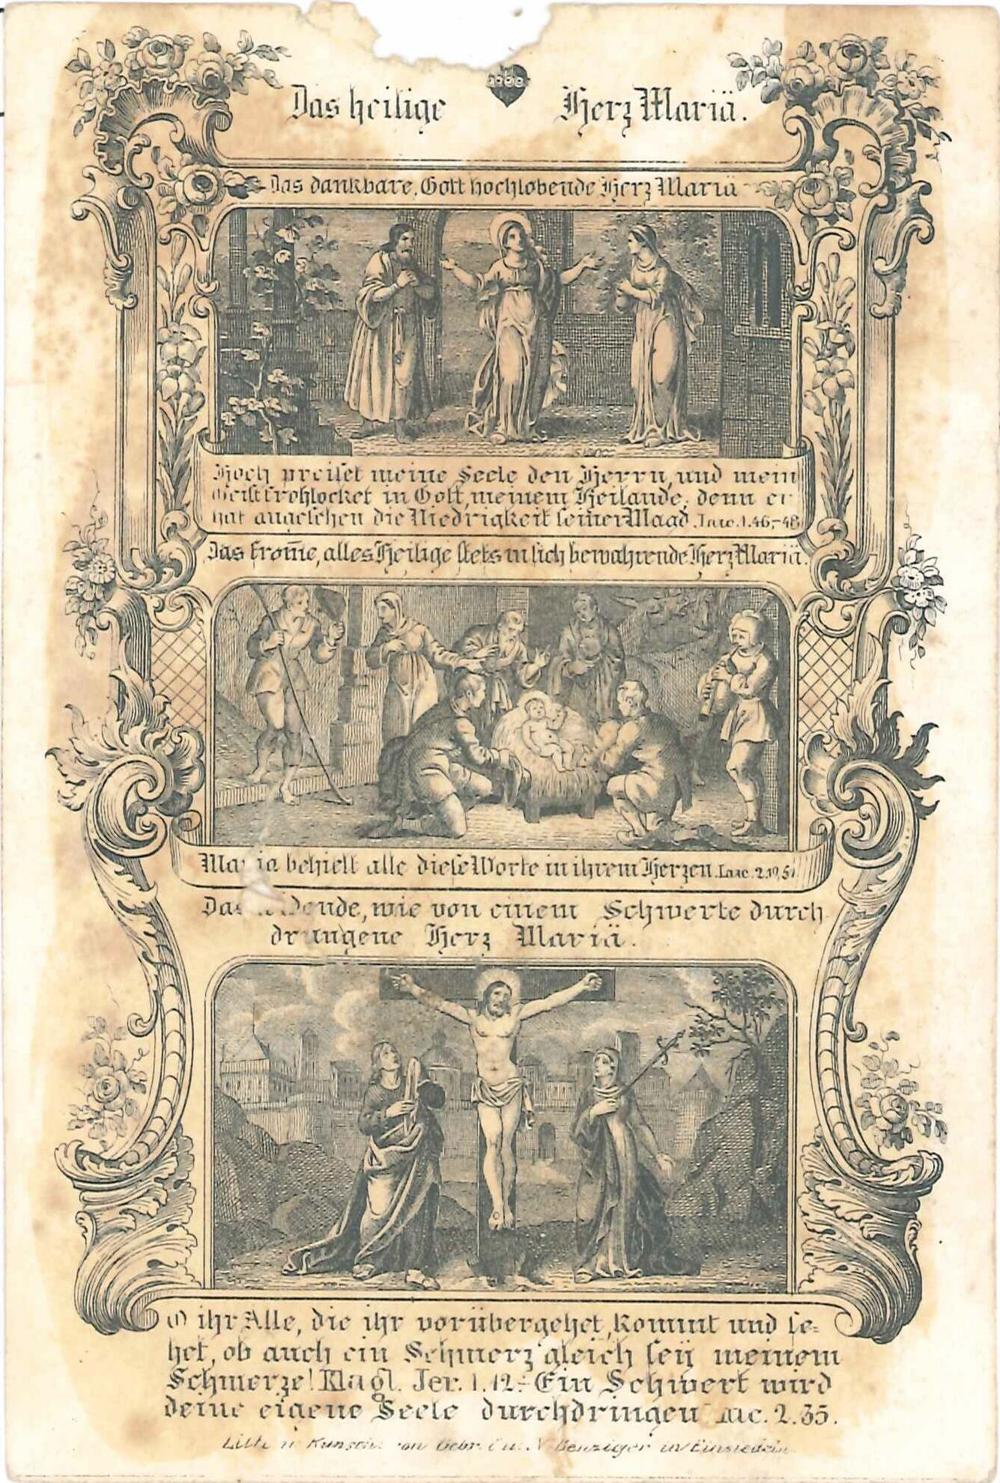 Das heilige Herz Mariä.
Das dankbare, Gott hochlobende Herz Mariä
Hoch preiset meine Seele den Herrn, und mein
Geist frohlocket in Gott, meinem Heilande, denn er
hat angesehen die Niedrigkeit seiner Maad. Luc. 1.46,-48
Das from̅e, alles Heilige stets in sich bewahrende Herz Mariä.
Maria behielt alle diese Worte in ihrem Herzen. Luc. 2.19,51
Das leidende, wie von einem Schwerte durch
drungene Herz Mariä.
O ihr Alle, die ihr vorübergehet, kommt und se-
het, ob auch ein Schmerz gleich seÿ meinem
Schmerze! Klagl. Jer. 1.12.- Ein Schwert wird
deine eigene Seele durchdringen Luc. 2.35.
Lith. u. Kunsth. von Gebr. C. u. N. Benziger in Einsiedeln